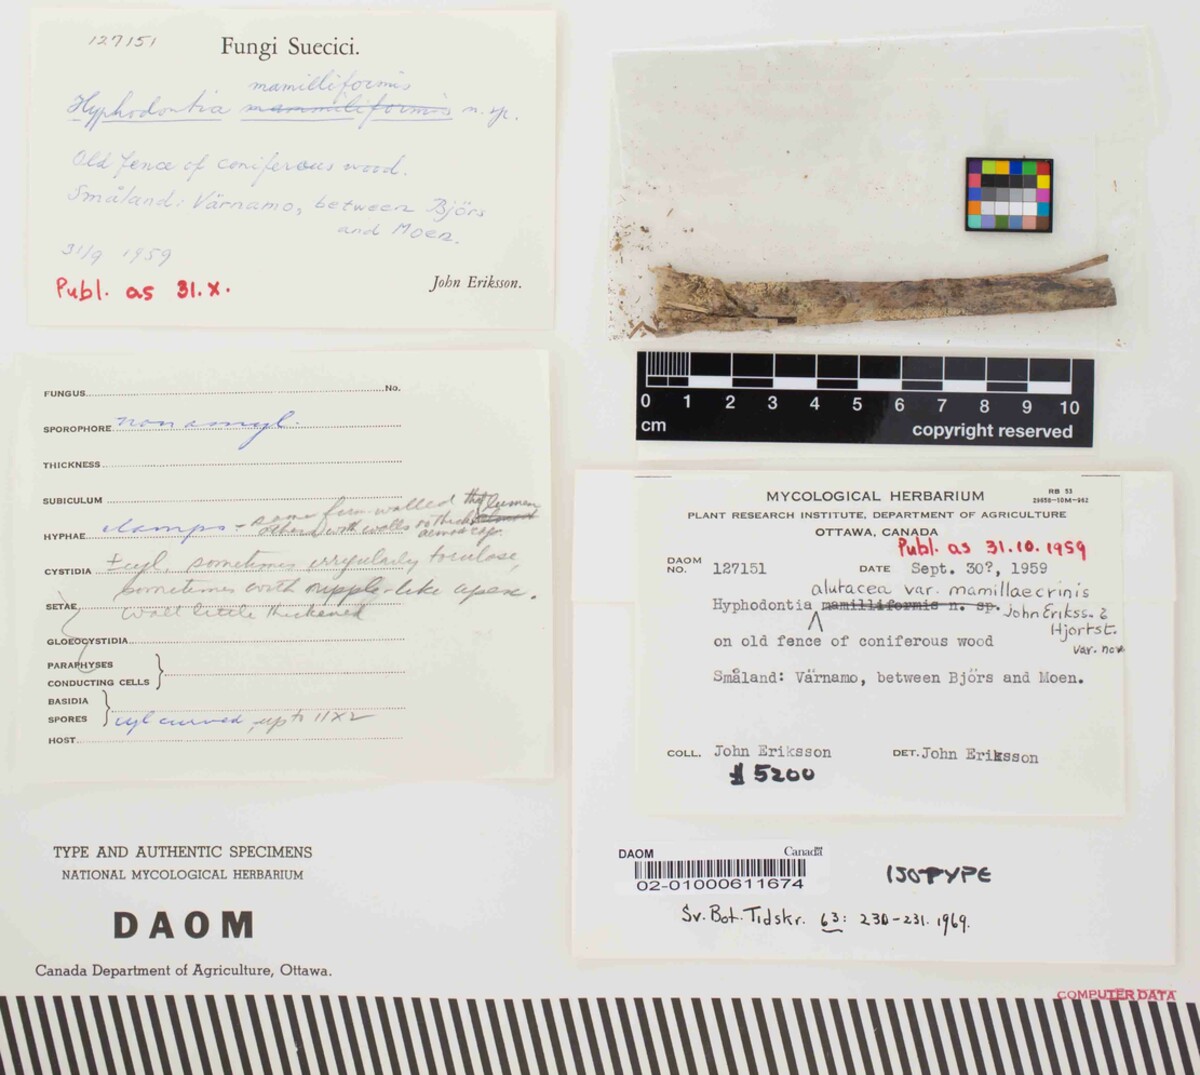 127151
Fungi Suecici.
mamilliformis
Hyphodontia mammiliformis n. sp.
Old fence of coniferous wood.
Småland: Värnamo, between Björs
and Moen.
31/9 1959
Publ. as 31.X.
John Eriksson.
FUNGUS No.
SPOROPHORE non amyl.
THICKNESS
SUBICULUM
HYPHAE clamps - some firm-walled
others with walls so thick
CYSTIDIA ±cyl, sometimes irregularly torulose,
sometimes with nipple-like apex.
SETAE wall little thickened
GLOEOCYSTIDIA
PARAPHYSES
CONDUCTING CELLS
BASIDIA
SPORES cyl curved, up to 11x2
HOST
TYPE AND AUTHENTIC SPECIMENS
NATIONAL MYCOLOGICAL HERBARIUM
DAOM
Canada Department of Agriculture, Ottawa.
0 1 2 3 4 5 6 7 8 9 10
cm
copyright reserved
MYCOLOGICAL HERBARIUM
RB 53
PLANT RESEARCH INSTITUTE, DEPARTMENT OF AGRICULTURE
OTTAWA, CANADA
Publ. as 31.10.1959
DAOM NO. 127151 DATE Sept. 30?, 1959
alutacea var. mamillaecrinis
Hyphodontia mamilliformis n. sp. John Erikss. &
Hjortst.
var. nov
on old fence of coniferous wood
Småland: Värnamo, between Björs and Moen.
COLL. John Eriksson DET. John Eriksson
# 5200
DAOM Canada
02-01000611674
ISOTYPE
Sv. Bot. Tidskr. 63: 230-231. 1969.
COMPUTER DATA